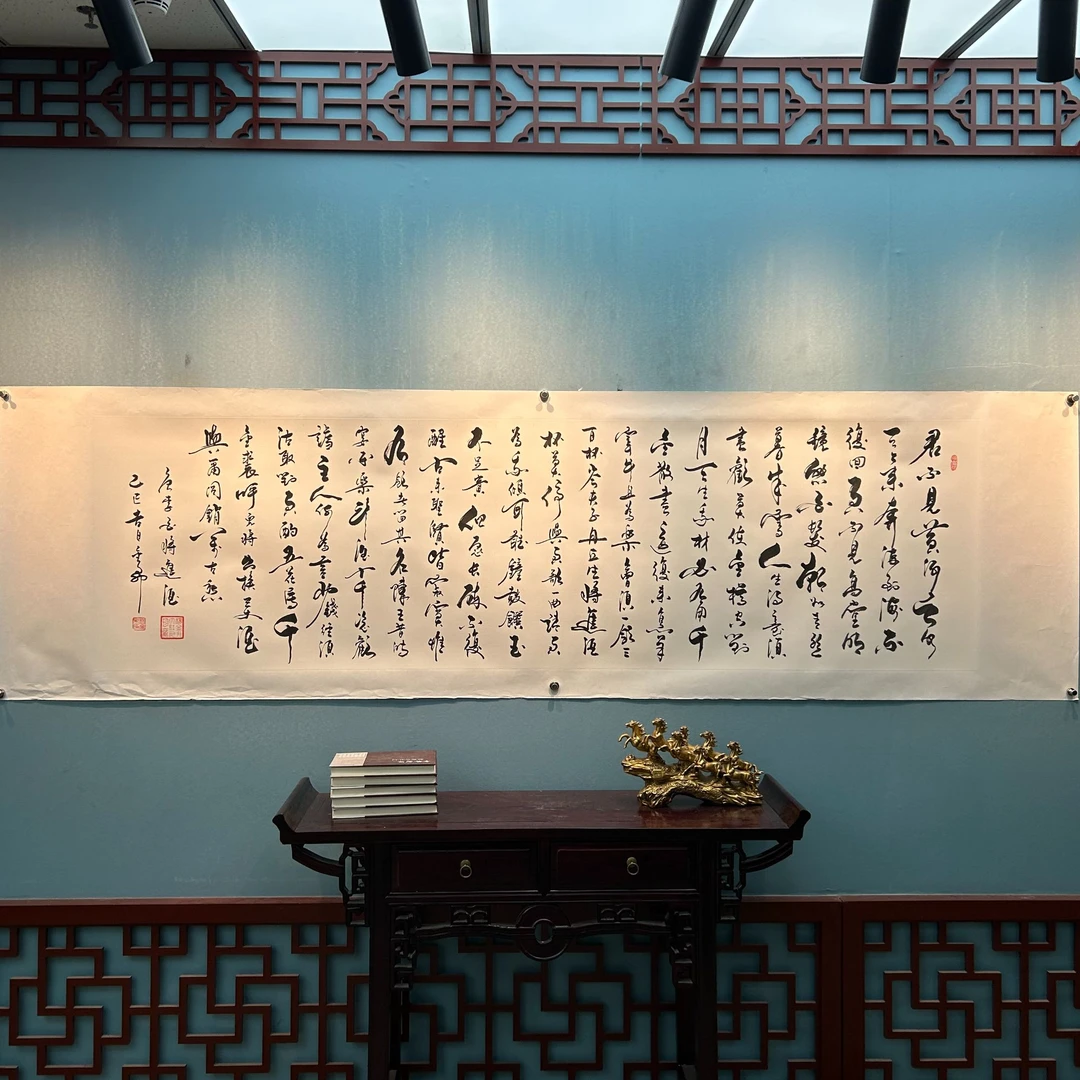 君不見黃河之水
天上來奔流到海不
復回君不見高堂明
鏡悲白髮朝如青絲
暮成雪人生得意須
盡歡莫使金樽空對
月天生我材必有用千
金散盡還復來烹羊
宰牛且為樂會須一飲三
百杯岑夫子丹丘生將進酒
杯莫停與君歌一曲請君
為我傾耳聽鐘鼓饌玉
不足貴但願長醉不復
醒古來聖賢皆寂寞惟
有飲者留其名陳王昔時
宴平樂斗酒十千恣歡
謔主人何為言少錢徑須
沽取對君酌五花馬千
金裘呼兒將出換美酒
與爾同銷萬古愁
唐李白將進酒
乙巳吉日